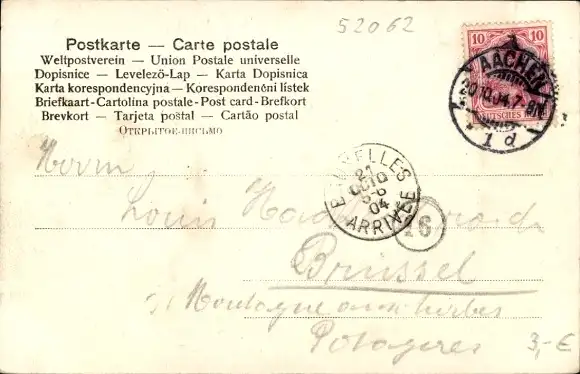 52062
Postkarte — Carte postale
Weltpostverein — Union Postale universelle
Dopisnice — Levelező-Lap — Karta Dopisnica
Karta korespondencyjna — Korespondenčni listek
Briefkaart - Cartolina postale - Post card - Brefkort
Brevkort — Tarjeta postal — Cartão postal
Открытое письмо
10 10
AACHEN
20.10.04.7-8N
1 d
BRUXELLES
21
OCT
04
ARRIVÉE
16
Herrn
Louis
Brussel
Montagne aux herbes
Potagères
3,-€